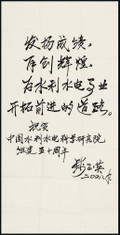 发扬成绩，
再创辉煌，
为水利水电事业
开拓前进的道路。
祝贺
中国水利水电科学研究院
组建五十周年